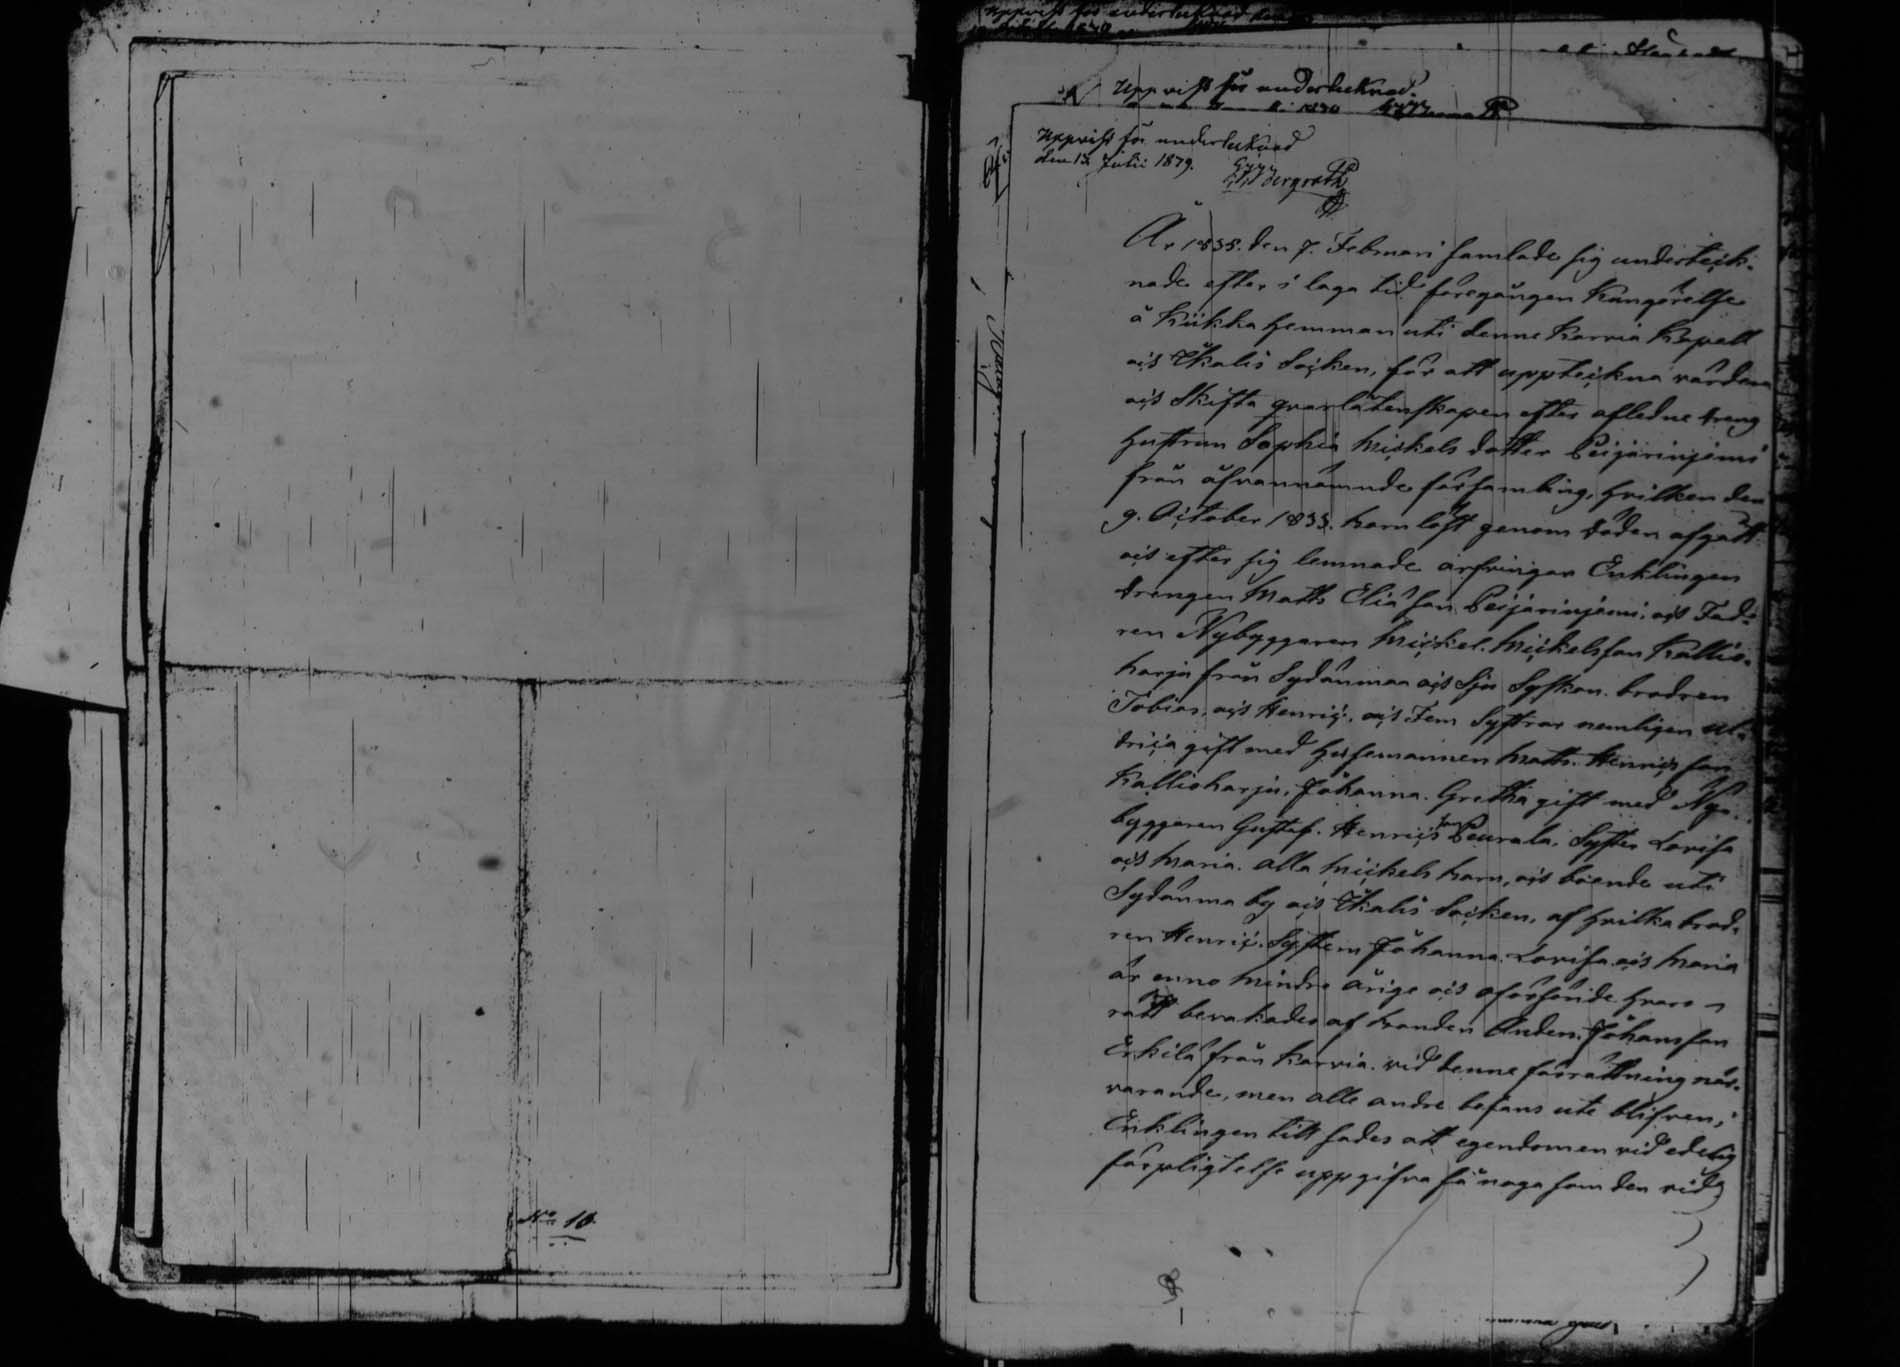 Uppvist för undertecknad
Uppvist för undertecknad
den 13 Julii 1879.
År 1835. den 7. Februari samlade sig underteck-
nade efter i laga tid föregången Kungörelse
å Kiikka hemman uti denne Karvia Kapell
och Ikalis Socken, för att uppteckna värdera
och Skifta qvarlåtenskapen efter afledne dreng
hustrun Sophia Mickels dotter Peijarinjemi
från åfvannämnde församling, hvilken den
9. October 1833. barnlöst genom döden afgått
och efter sig lemnade arfvingar Enklingen
drengen Matts Elia son Peijarinjemi, och Fad-
ren Nybyggaren Mickel Mickelsson Kallio-
harju från Sydänmaa och Sju Syskon. brodren
Tobias, och Henric, och Fem Systrar nemligen Ul-
drica gift med husemannen Matts Henrics son
Kallioharju, Johanna. Gretha gift med Ny-
byggaren Gustaf Henrics son Peurala, Syster Lovisa
och Maria. alla Mickels barn, och boende uti
Sydänma by och Ikalis Socken, af hvilka brod-
ren Henric. Systern Johanna. Lovisa och Maria
är enno mindre årige och oförsörjde hvars
rätt bevakades af bonden Anders Johansson
Erkilä från Karvia. vid denne förrättning när-
varande, men alle andre befans ute blifven,
Enklingen tillsades att egendomen vid edelig
förpligtelse uppgifva så noga som den vid
No 10